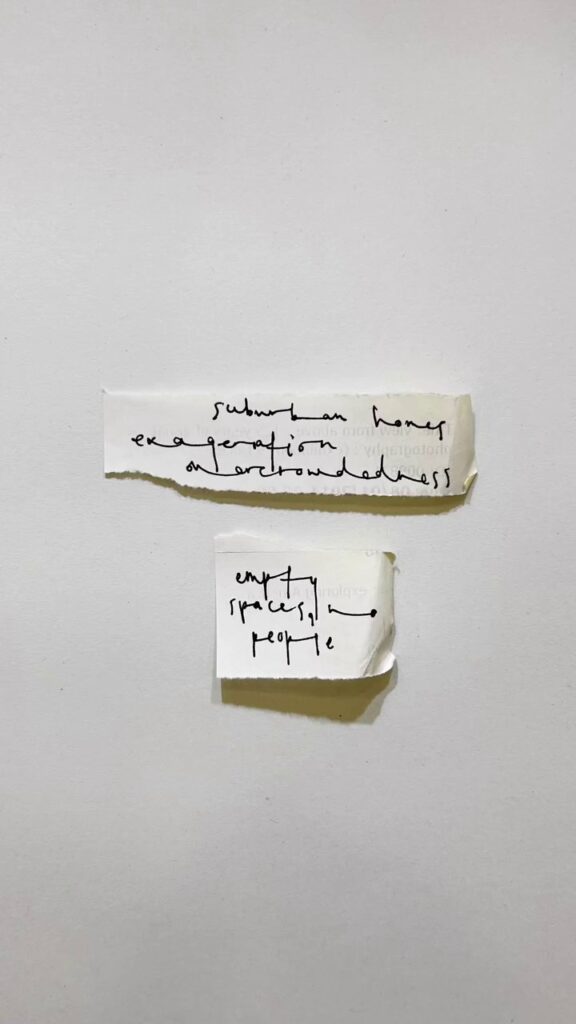 suburban homes
exageration
overcrowdedness
empty
spaces, no
people